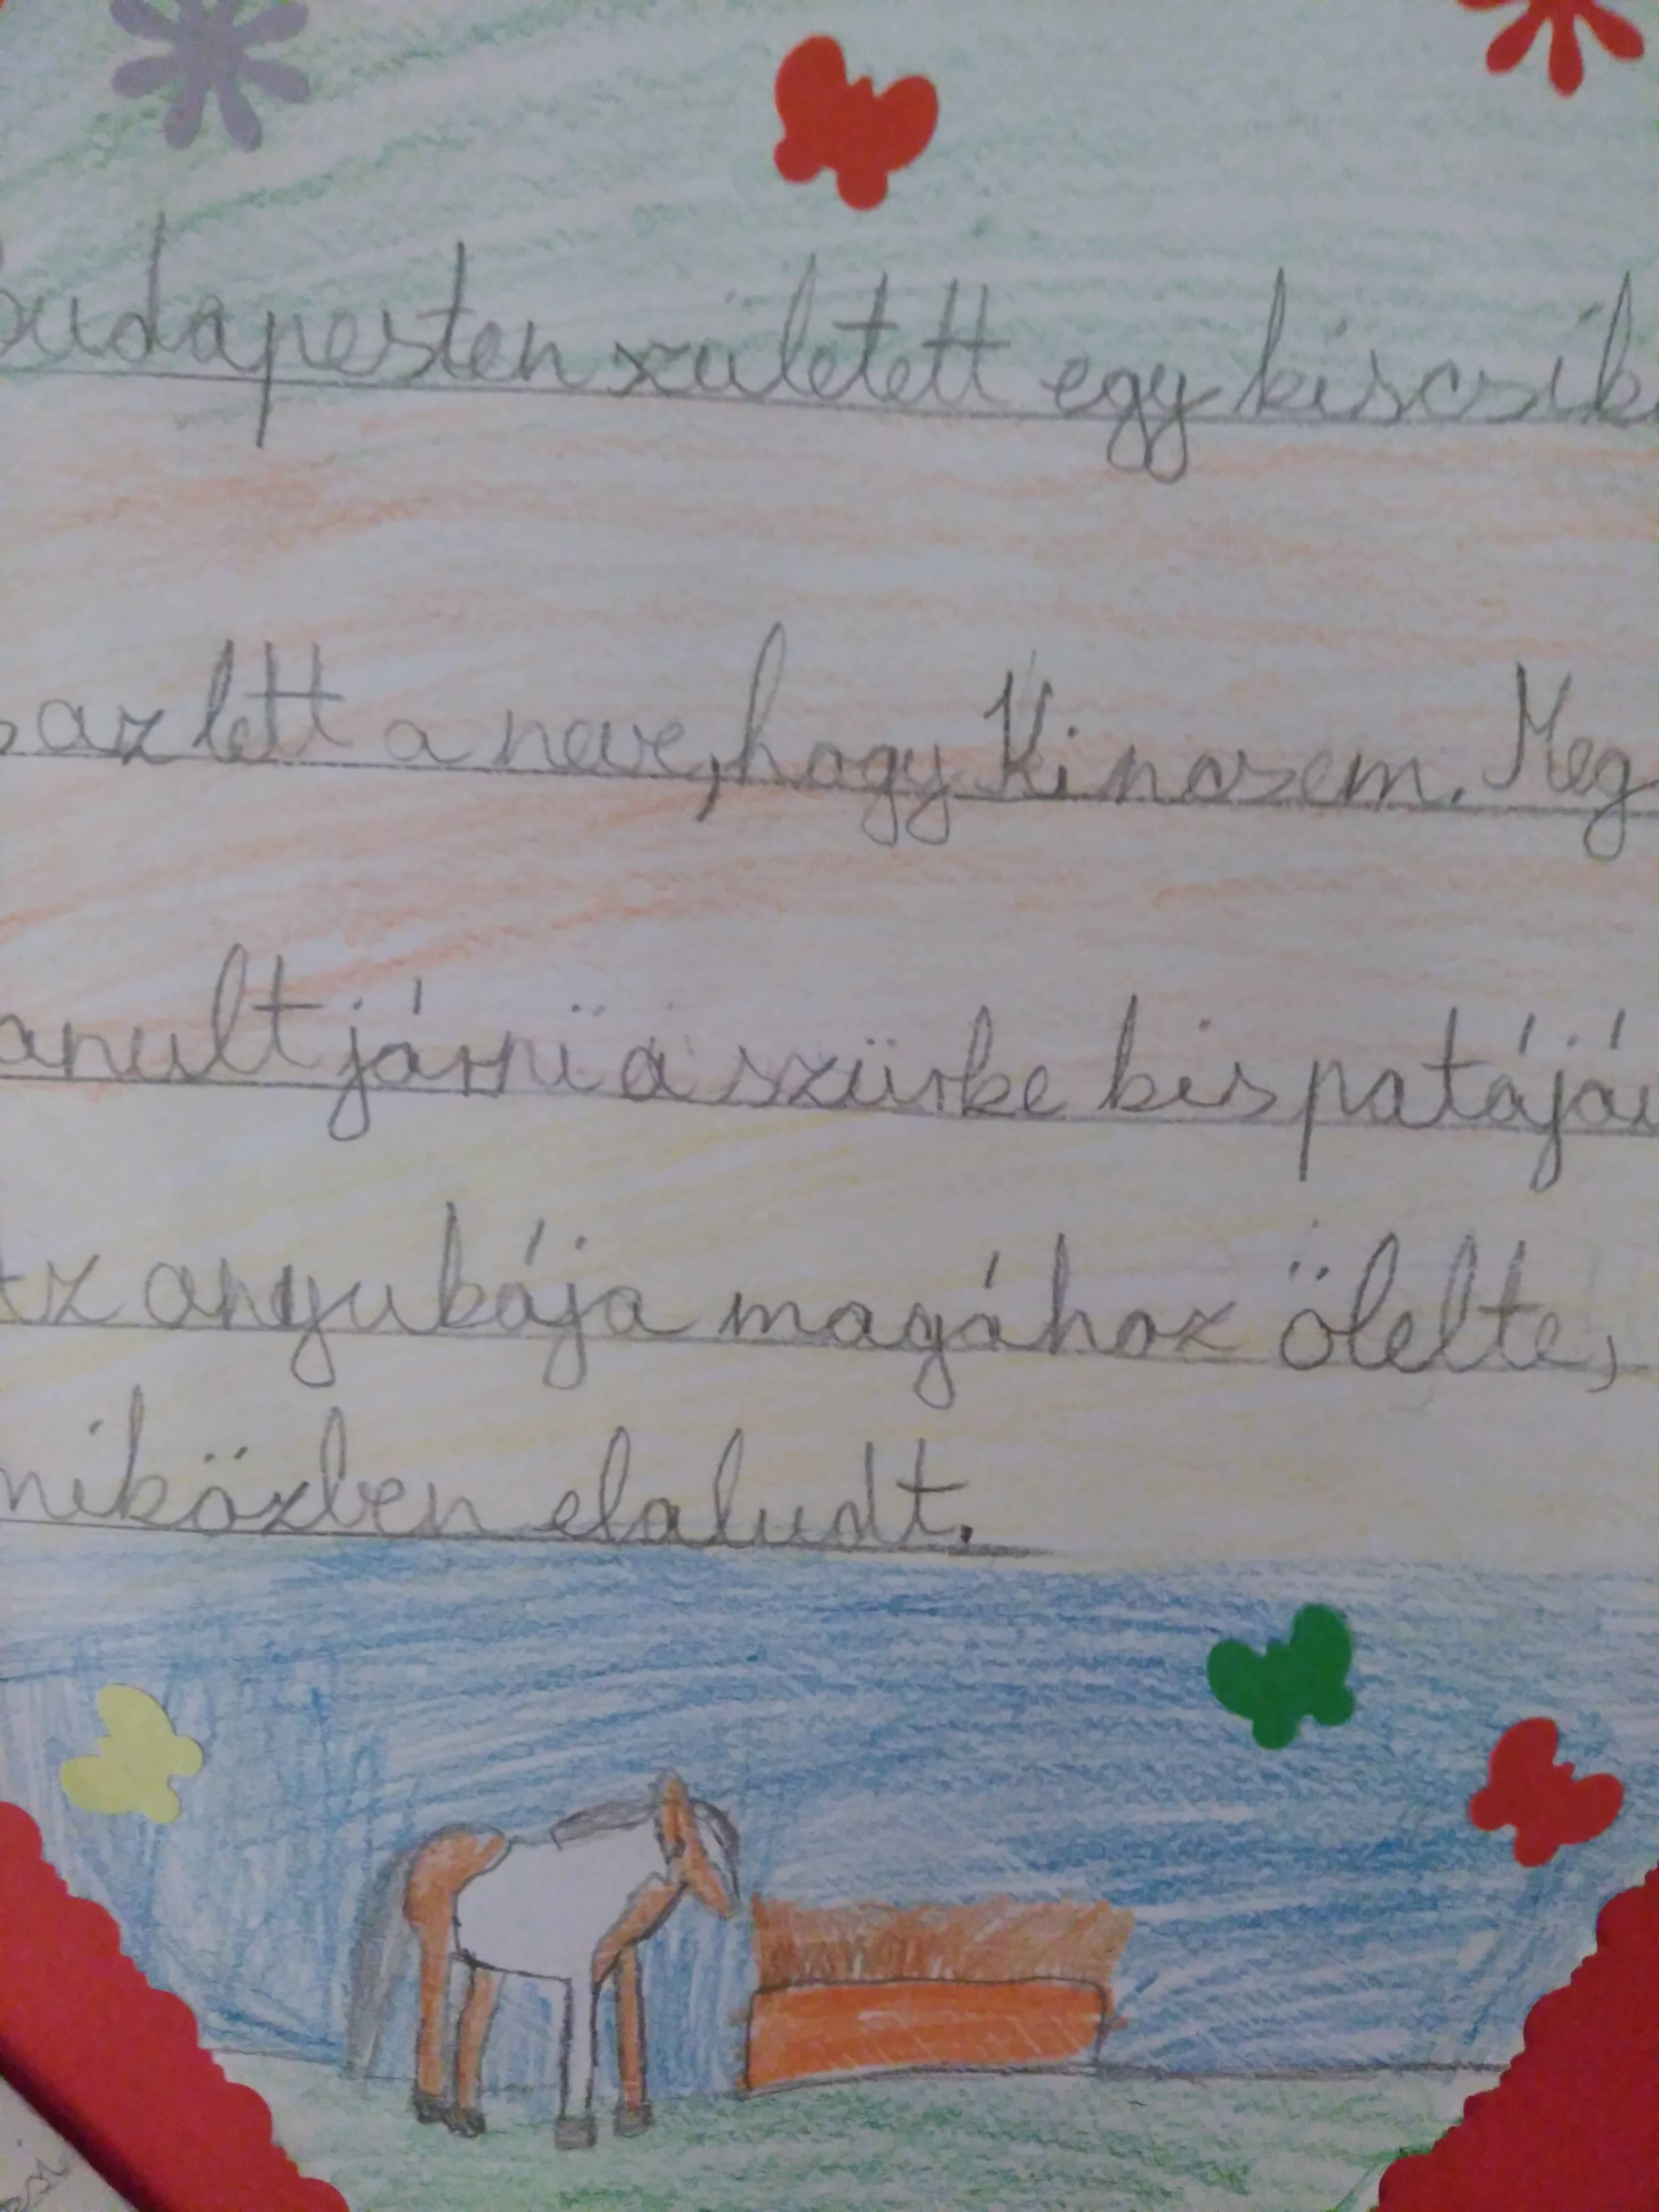 Budapesten született egy kiscsik
az lett a neve, hogy Kincsem. Meg
anult járni a szürke kis patájá
Az anyukája magához ölelte,
miközben elaludt.